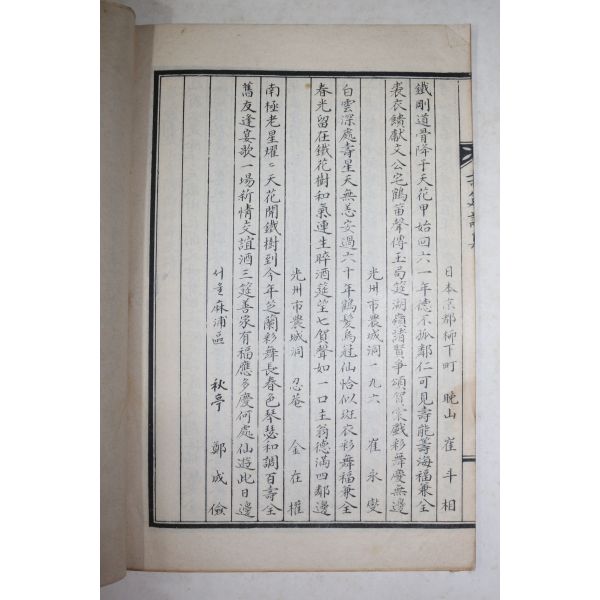 日本京都柳下町 晩山 崔斗相
鐵剛道骨降于天花甲始回六一年德不孤鄰仁可見壽能籌海福兼全
裵衣繡獻文公宅鶴笛聲傳玉局筵湖嶺諸賢爭頌賀 戱彩舞慶無邊
光州市農城洞一九六 崔永燮
白雲深處壽星天無恙安過六十年鶴髮烏冠仙恰似斑衣彩舞福兼全
春光留在鐵花樹和氣連生醉酒筵笙七賀聲如一口主翁德滿四鄰邊
光州市農城洞 忍菴 金在權
南極老星燿〻天花開鐵樹到今年芝蘭彩舞長春色琴瑟和調百壽全
舊友逢宴歌一場新情交誼酒三筵善家有福應多慶何處仙遊此日邊
서울麻浦區 秋亭 鄭成儉